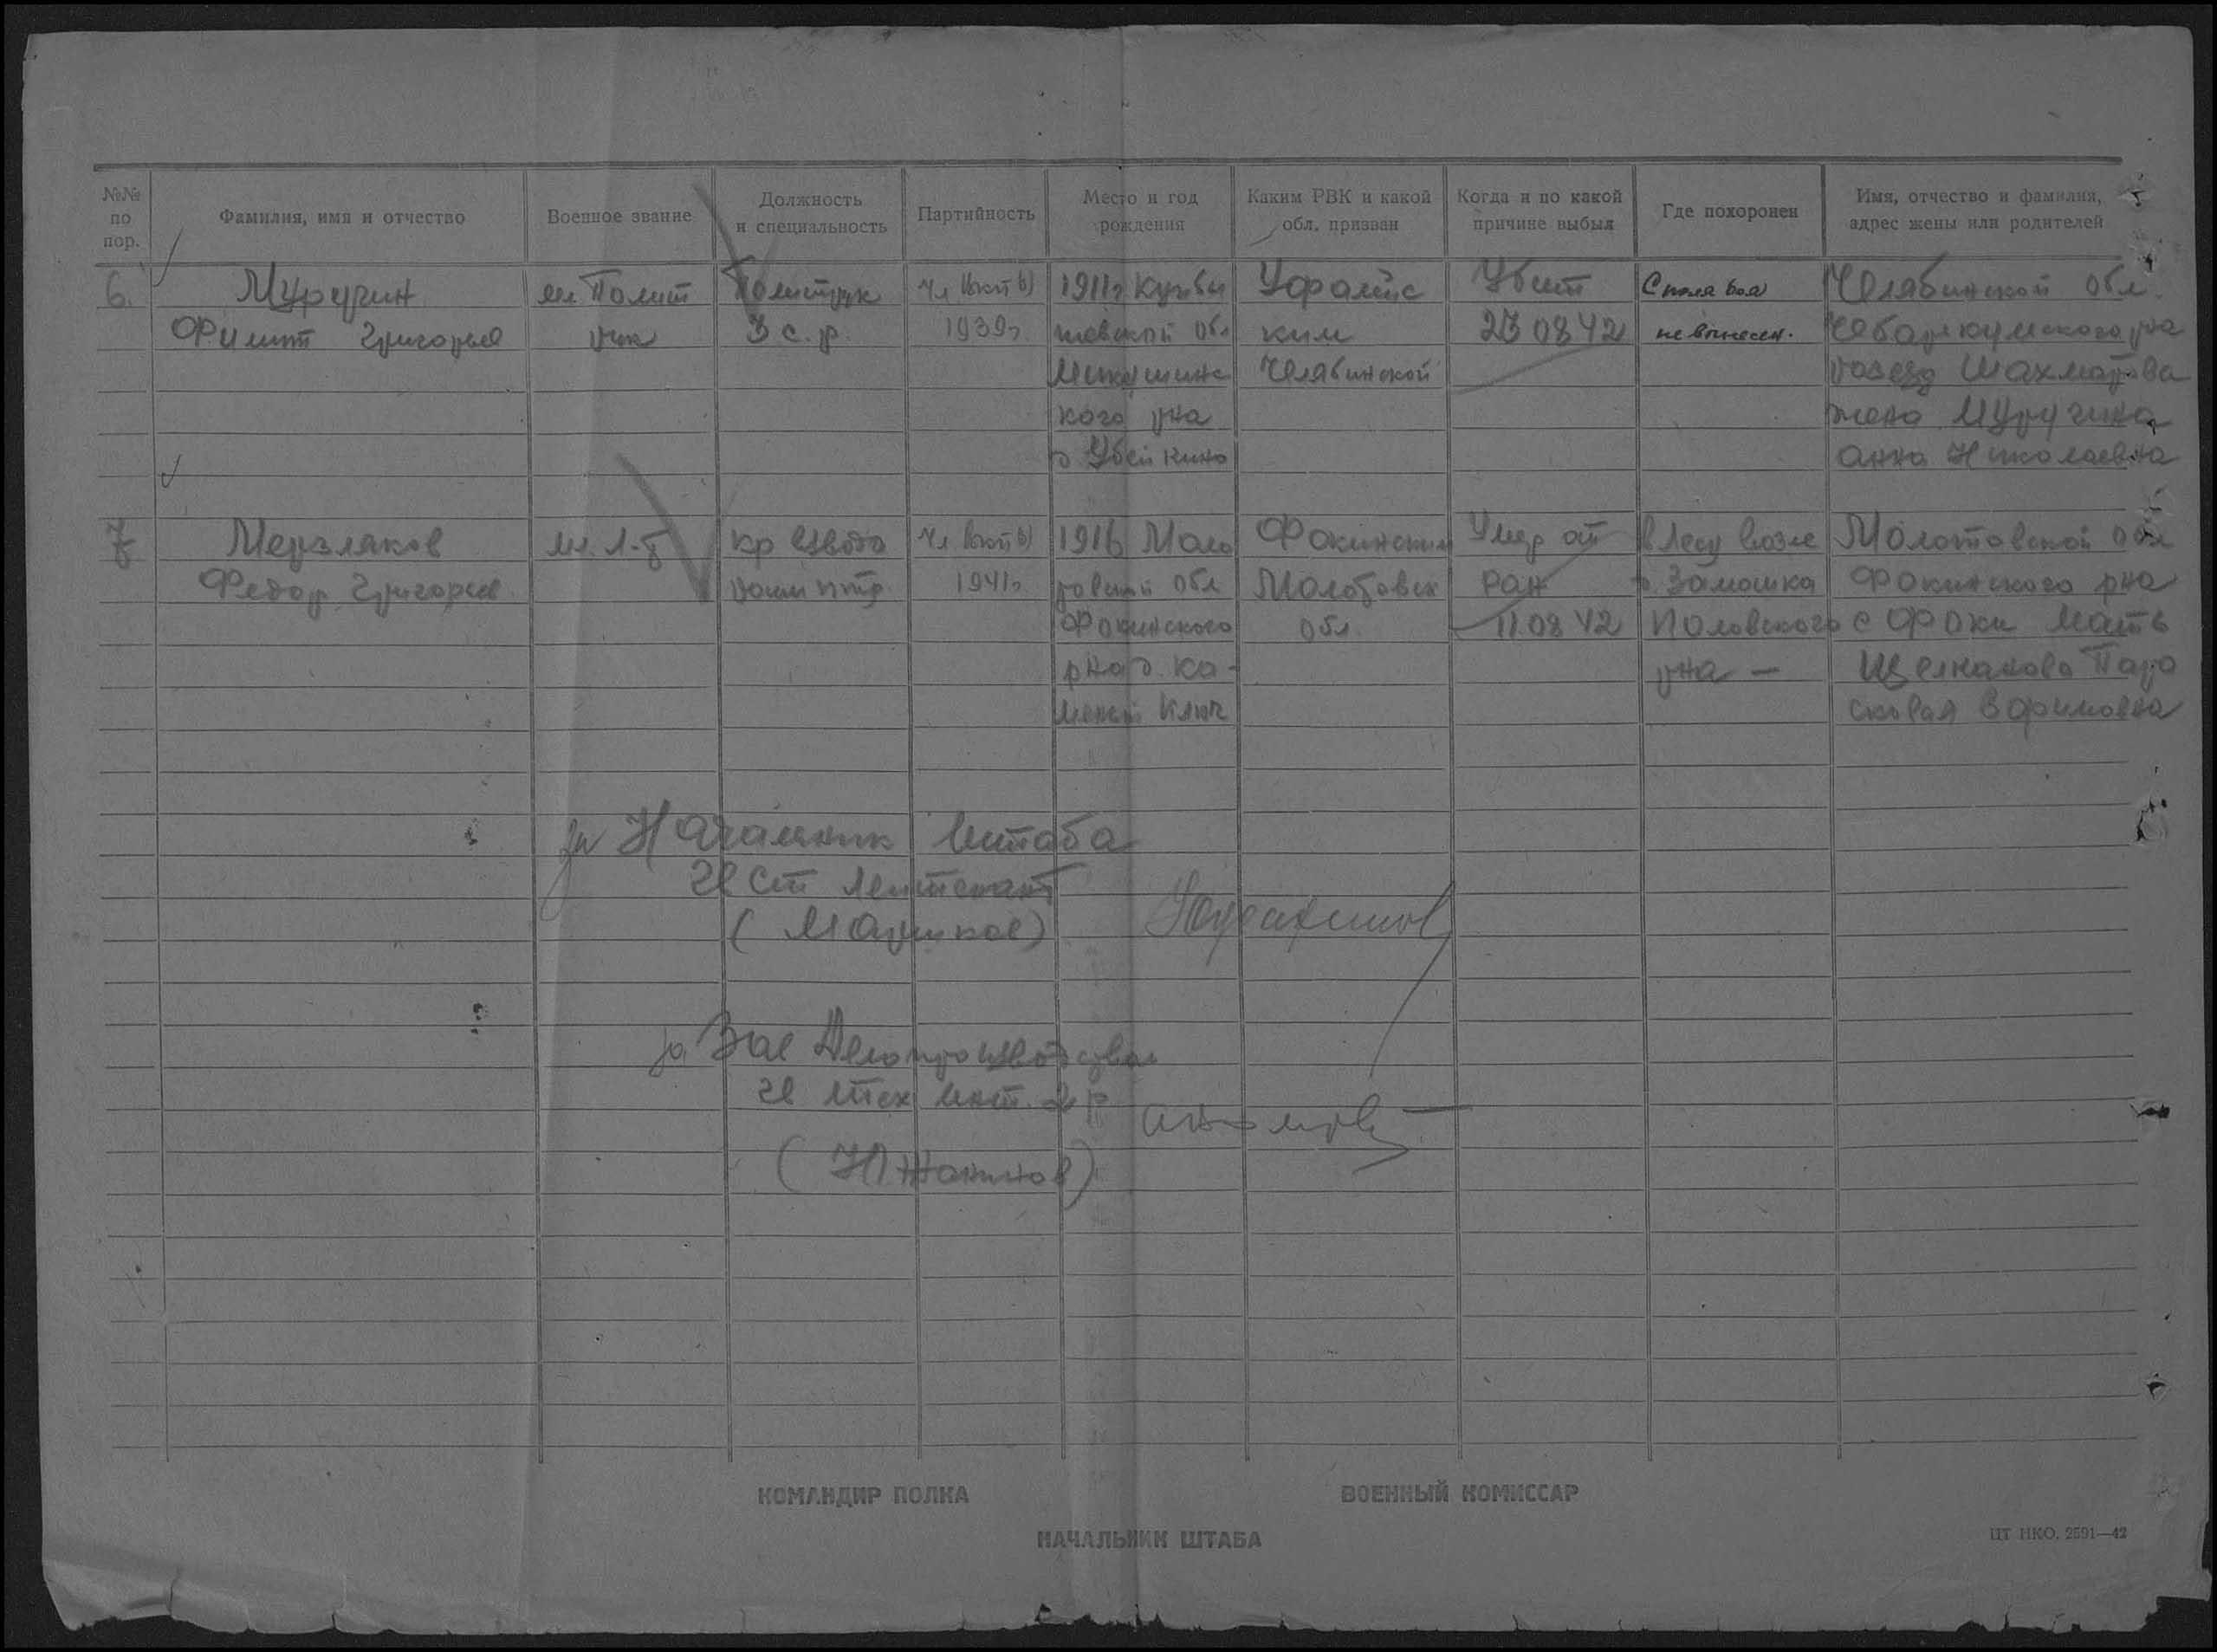 №№ по пор.
Фамилия, имя и отчество
Военное звание
Должность и специальность
Партийность
Место и год рождения
Каким РВК и какой обл. призван
Когда и по какой причине выбыл
Где похоронен
Имя, отчество и фамилия, адрес жены или родителей
6.
Муругин
Григорьев
мл Полит
рук
Политрук
3 с. р.
Чл вкп(б)
1939г
1911г Куйбы
шевской обл
кого рна
Уфалейс
ким
Челябинской
Убит
23 08 42
С поля боя
не вынесен.
Челябинской обл.
Чебаркумского рна
розезд Шахматова
жена Муругина
Анна Николаевна
7
Мерзляков
Федор Григорьев
мл. л-т
кр взвода
Чл вкп(б)
1941г
1916 Моло
товской обл
Фокинского
рна д. Ка-
менный Ключ
Фокинским
Молотовск
обл.
Умер от
ран
11.08 42
в лесу возле
д. Замошка
Половского
рна —
Молотовской обл
Фокинского рна
с Фоки Мать
Пара
сковья Ефимовна
за Начальник Штаба
Ст Лейтенант
за Зав Делопроизводством
тех инт. 2 р
КОМАНДИР ПОЛКА
ВОЕННЫЙ КОМИССАР
НАЧАЛЬНИК ШТАБА
ЦТ НКО. 2591—42